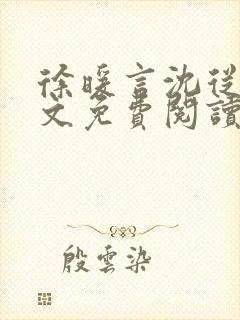 徐暖言沈從
文免費閱讀
殷雲染